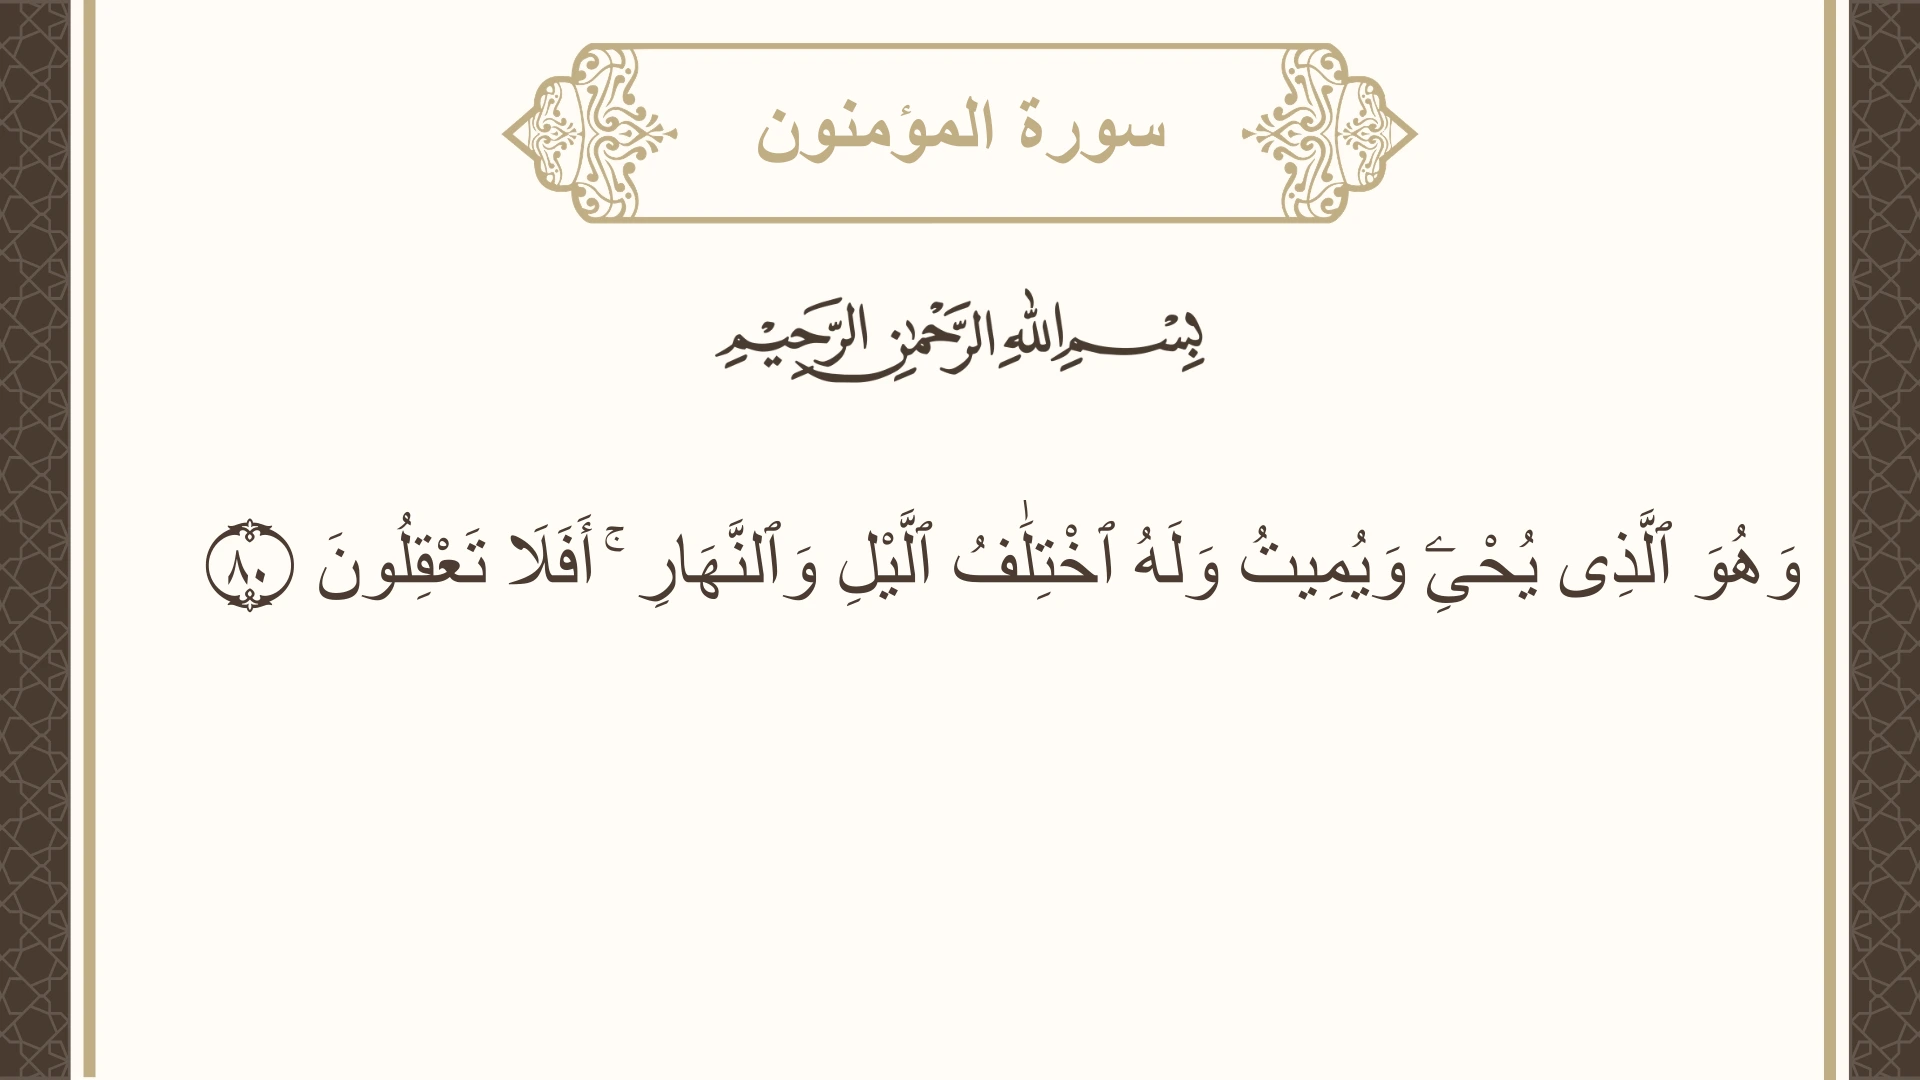 سورة المؤمنون
بِسْمِ اللهِ الرَّحْمٰنِ الرَّحِيْمِ
وَهُوَ ٱلَّذِى يُحْىِۦ وَيُمِيتُ وَلَهُ ٱخْتِلَٰفُ ٱلَّيْلِ وَٱلنَّهَارِ ۚ أَفَلَا تَعْقِلُونَ ٨٠